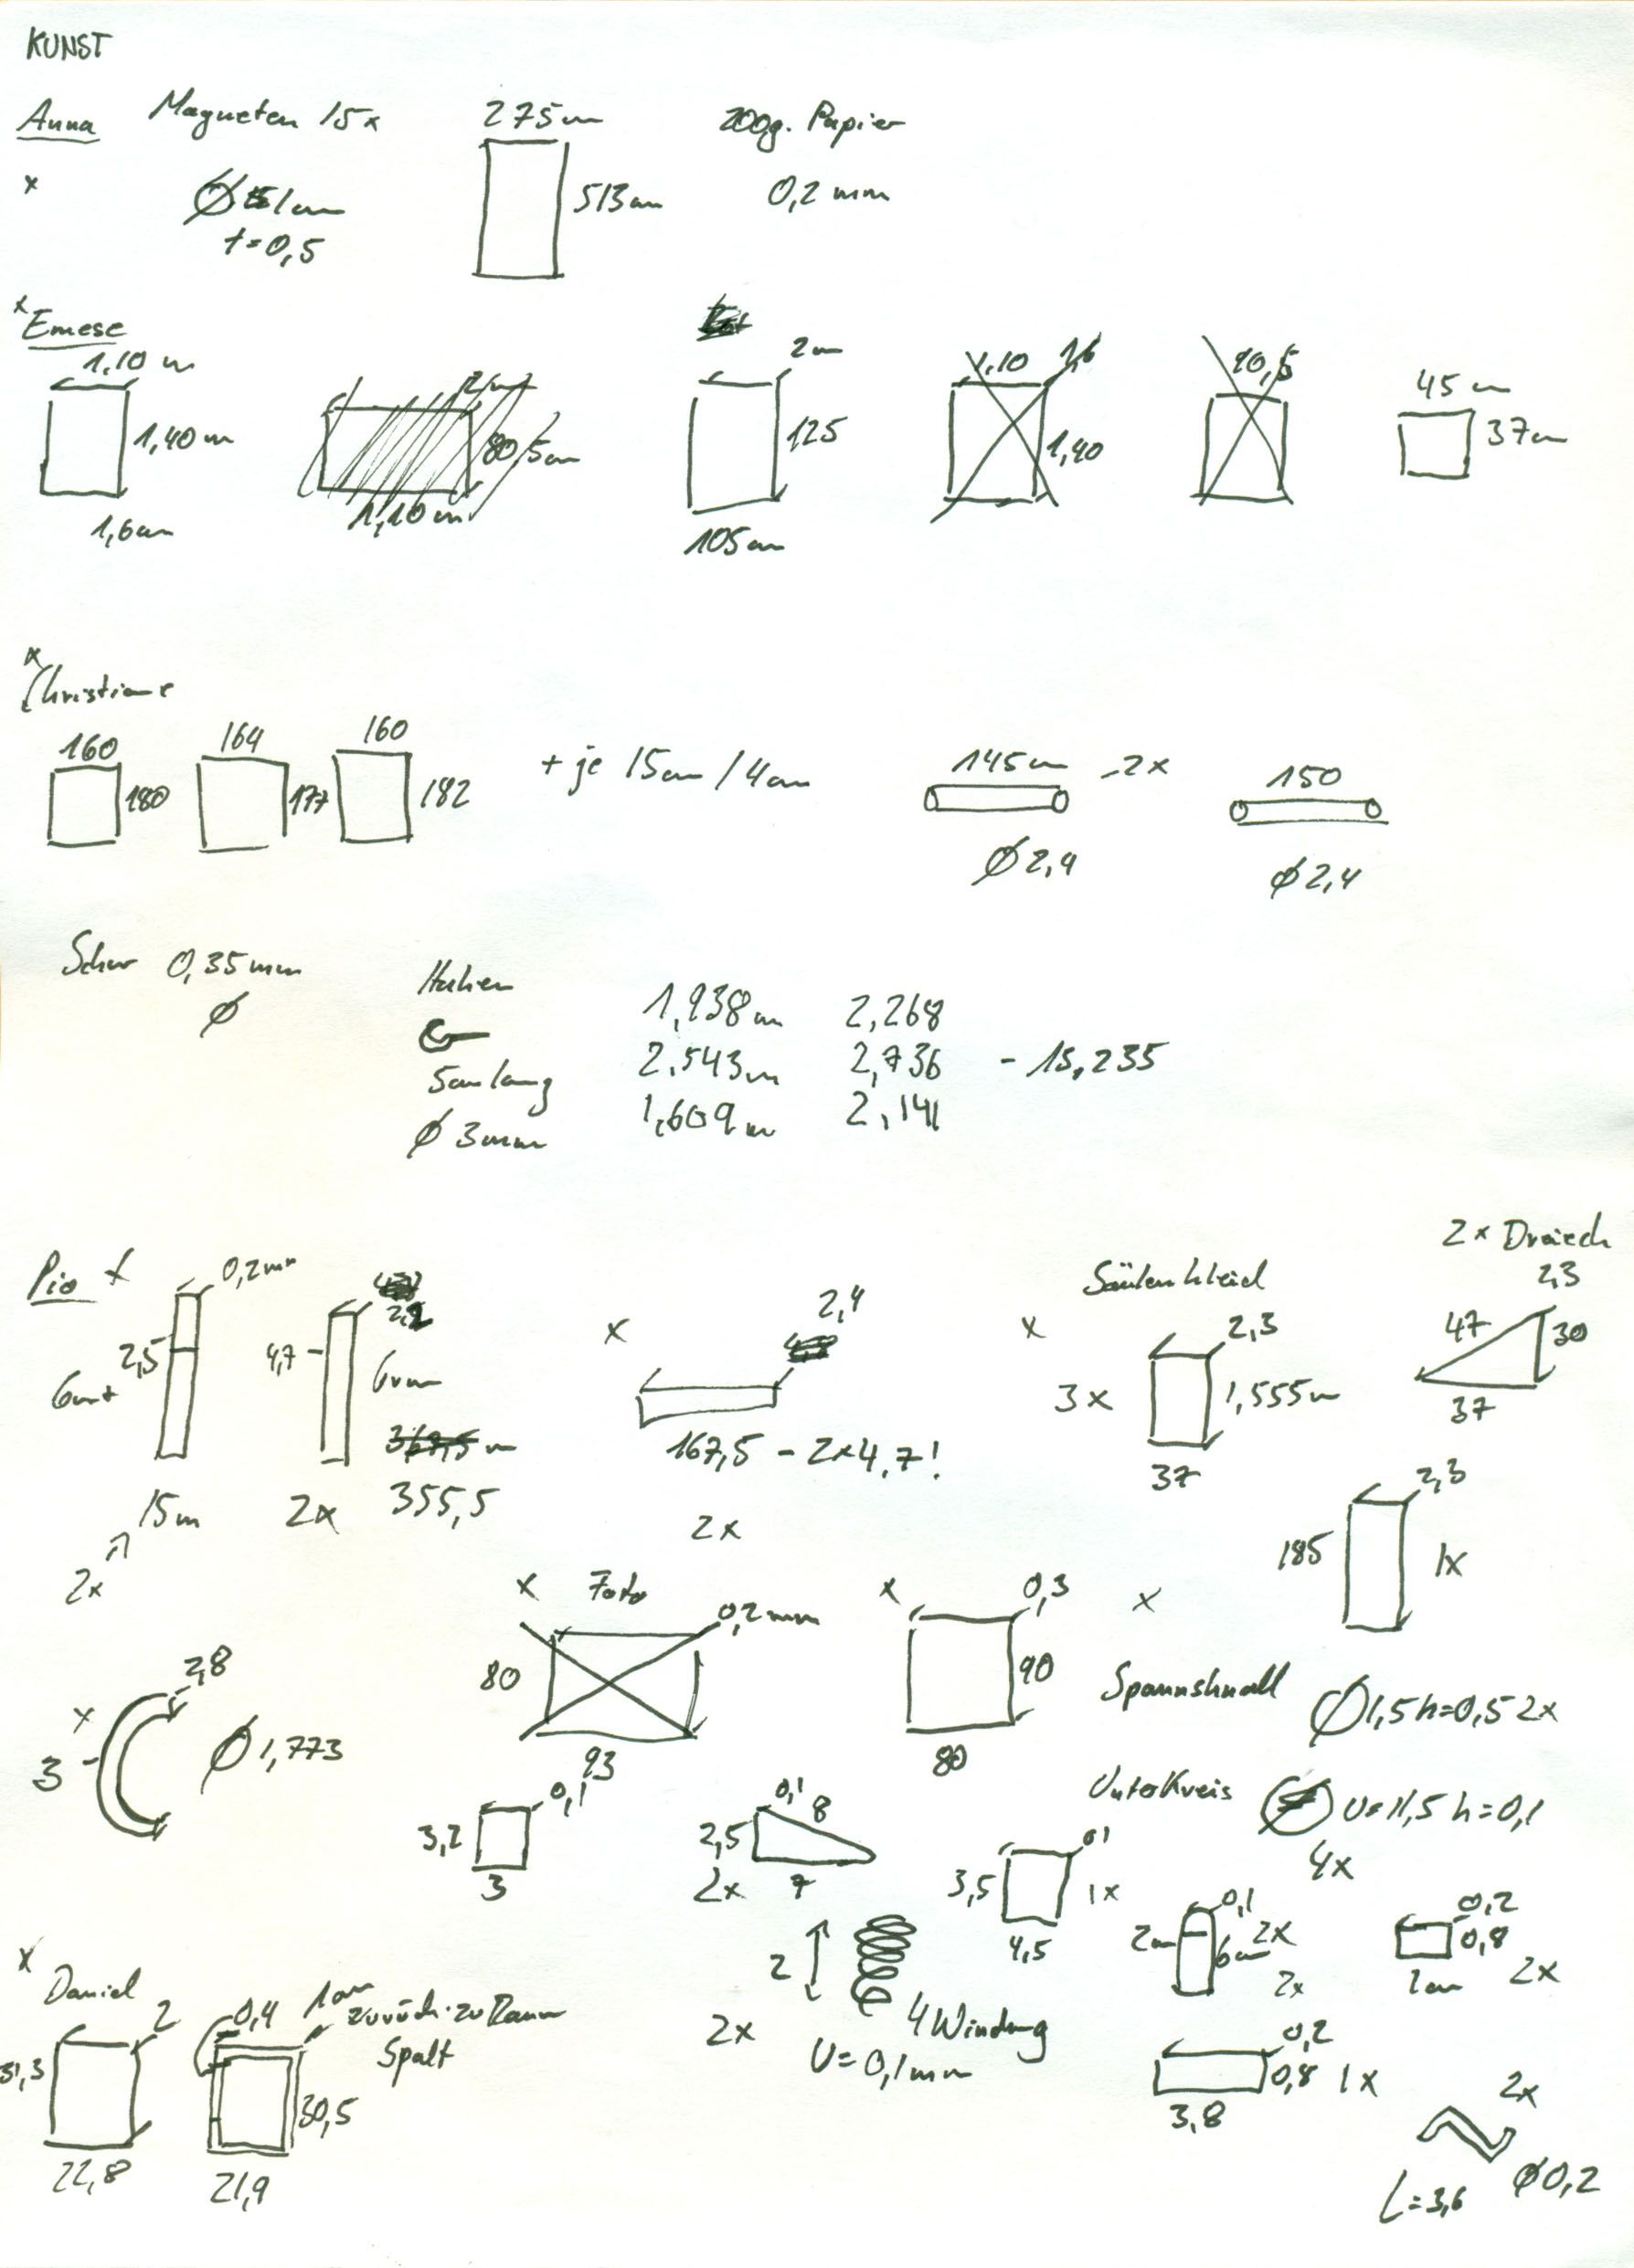 KUNST
Anna Magneten 15x 275cm 200g. Papier
x Ø 1cm 513cm 0,2 mm
t=0,5
x Emese
1,10 m 2cm 1,10 1,6 90,5 45cm
1,40m 80,5cm 125 1,40 37cm
1,6cm 1,10m 105cm
x
Christiane
160 164 160 + je 15cm / 4cm 145cm 2x 150
180 177 182
Ø 2,4 Ø 2,4
Schur 0,35mm
Ø
Haken 1,938m 2,268
2.543m 2,736 - 15,235
5cm lang
Ø 3mm 1,609m 2,141
2x Dreiech
Pia x 0,2mm Säulenkleid 2,3
2,4
x x 2,3 47 30
2,5 4,7 6mm 3x 1,555m 37
367,5m 167,5 - 2x4,7! 37
15m 2x 355,5 2,3
2x 185 1x
2x
x Foto x 0,3 x
0,2mm
2,8 80 90
x Spannshnall Ø1,5 h=0,5 2x
3 Ø 1,773
93 80
0,1 0,1 8 Unterkreis U=11,5 h=0,1
3,2 2,5 0,1 4x
3 2x 7 3,5 1x
4,5 0,1 0,2
2cm 6cm 2x 0,8
x 2 2x 2cm 2x
Daniel 2 0,4 1cm zurück zu Raum 4 Windung
2x
31,3 Spalt U=0,1mm 0,2
30,5 0,8 1x 2x
22,8 21,9 3,8
L=3,6 Ø0,2